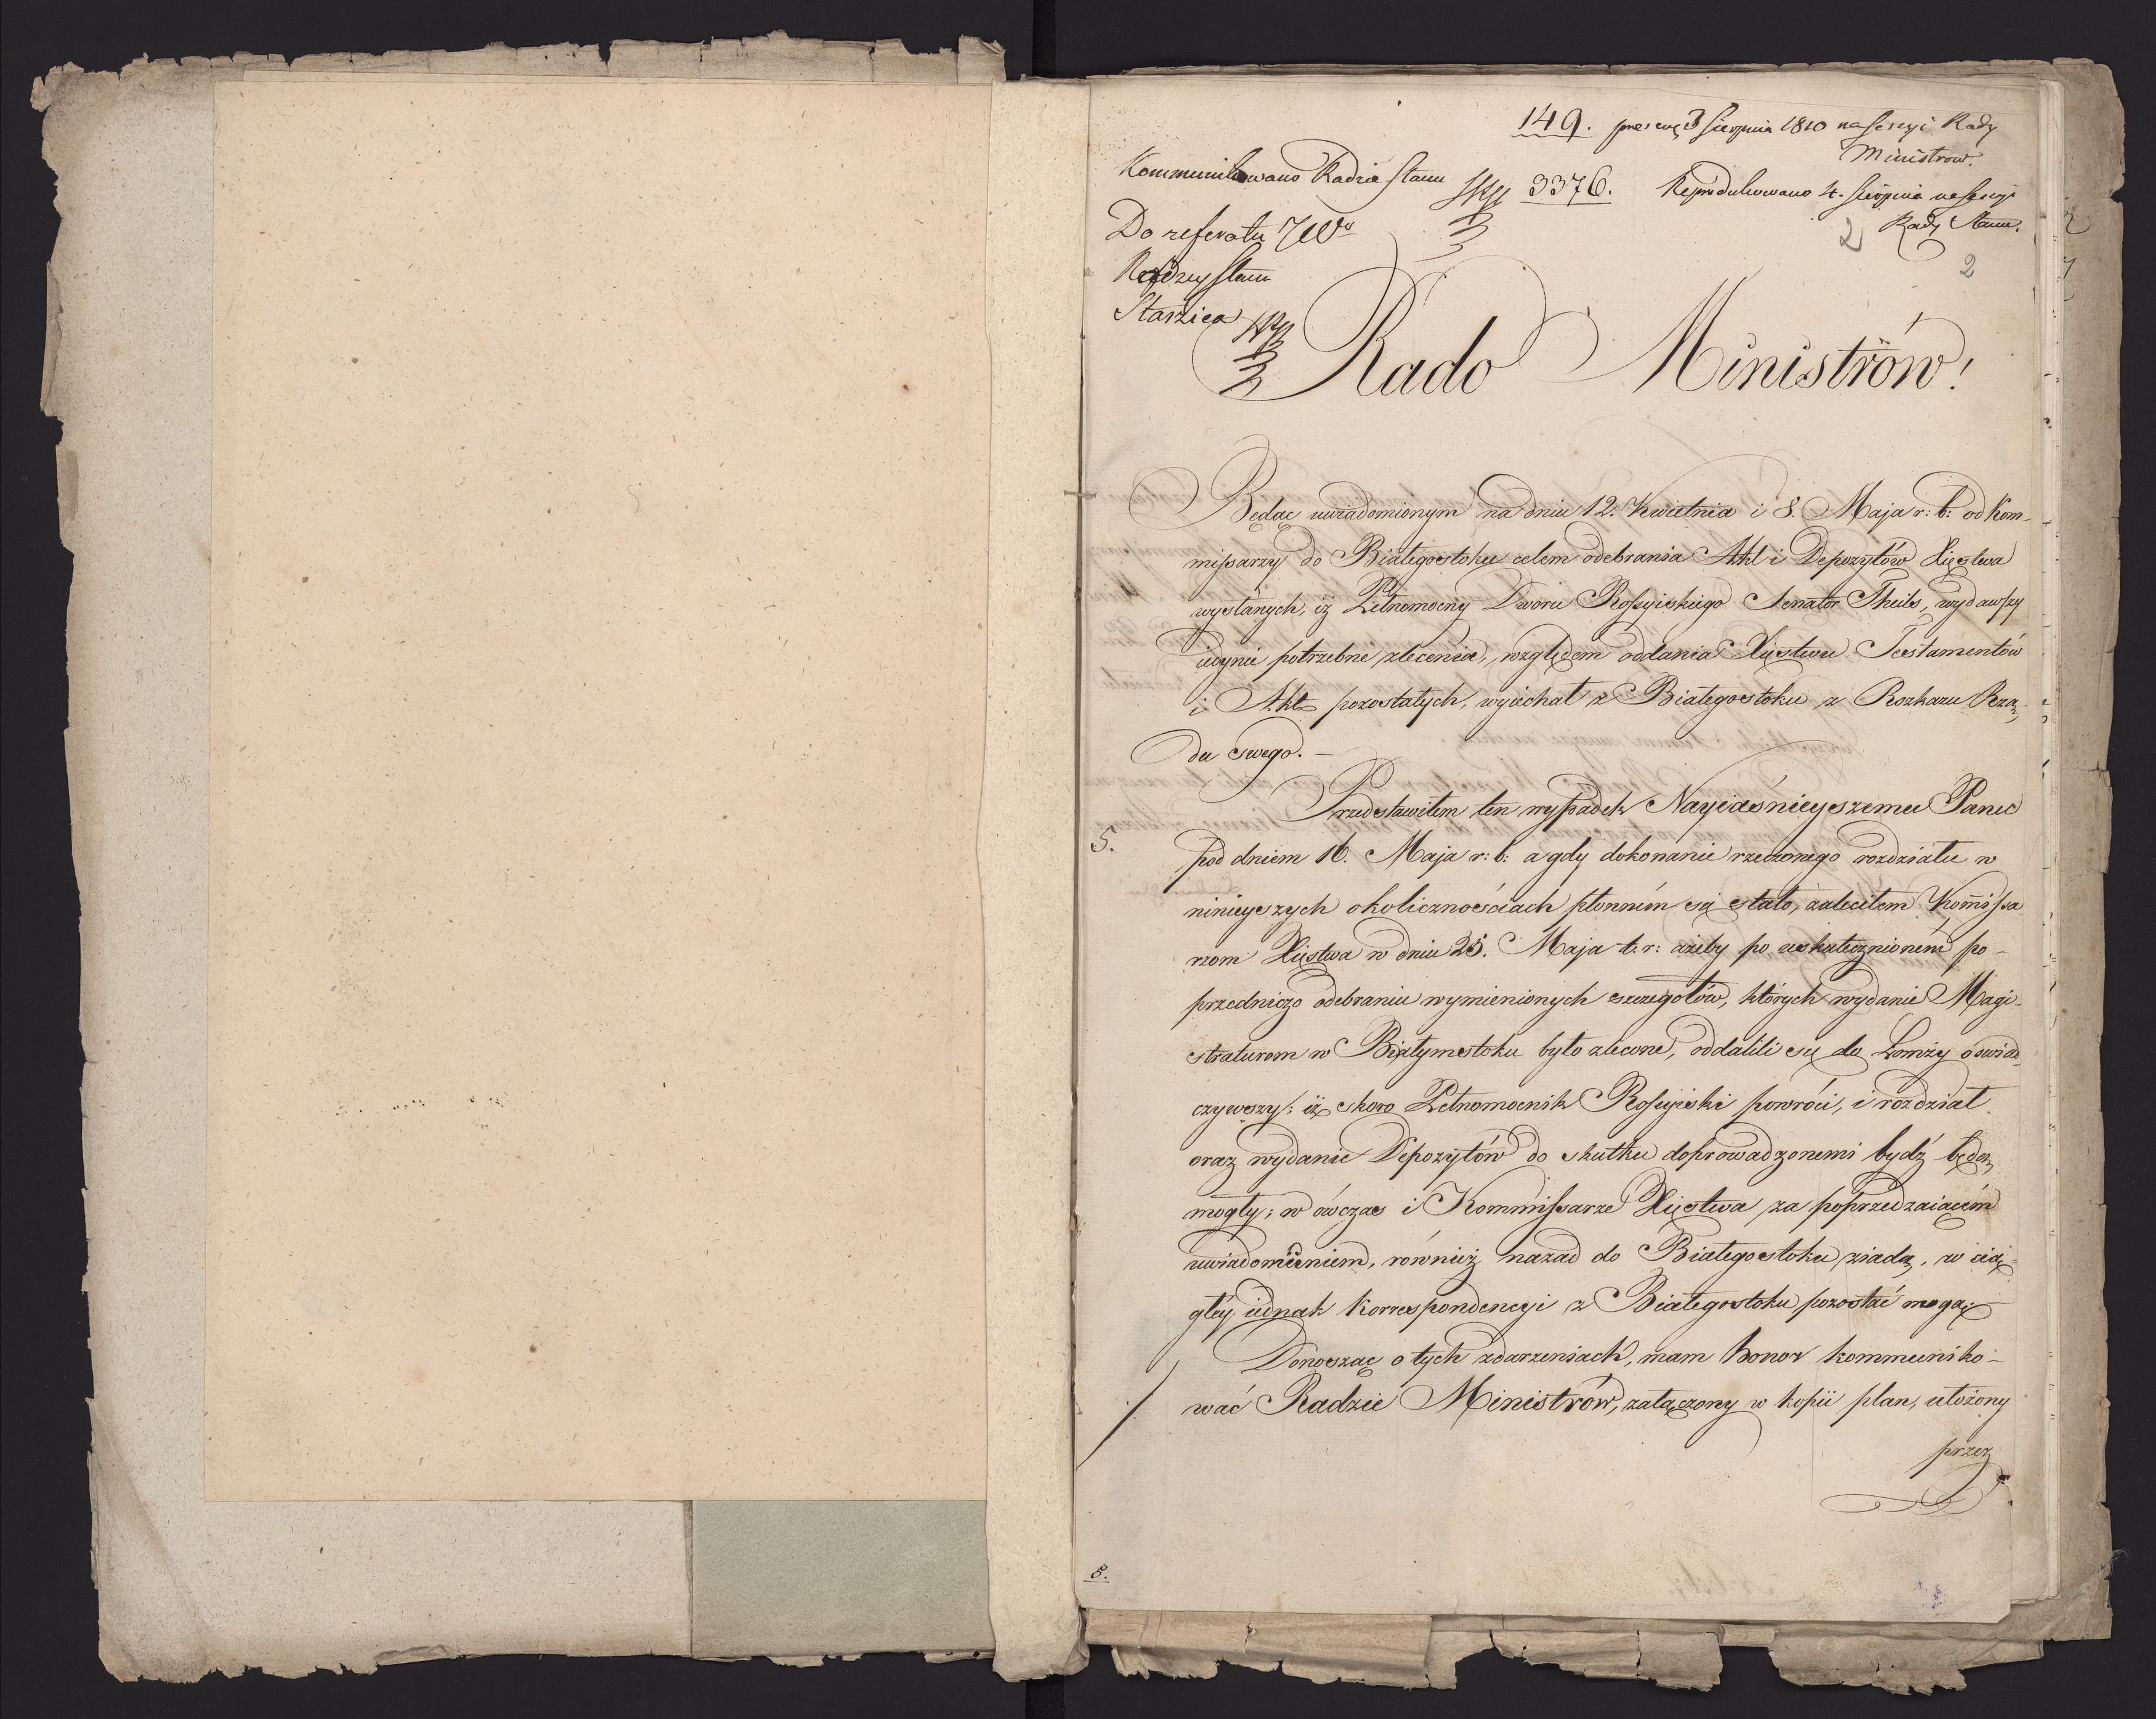 149. pres: 3 Sierpnia 1810 na Sessyi Rady
Ministrow.
Kommunikowano Radzie Stanu
3376. Reprodukowano 4. Sierpnia na Sessyi
Rady Stanu.
Do referatu JW
Radzcy Stanu
Staszica
2
2
Rado Ministrów!
Będąc uwiadomionym na dniu 12. Kwietnia i 8. Maja r: b: od Kom-
missarzy do Białegostoku celem odebrania Akt i Depozytów Xięstwa
wysłanych, iż Pełnomocny Dworu Rossyiskiego Senator Theils, wydawszy
iedynie potrzebne zlecenia, względem oddania Xięstwu Testamentów
i Akt pozostałych, wyiechał z Białegostoku z Rozkazu Rzą-
du swego. –
Przedstawiłem ten wypadek Nayiaśnieyszemu Panu
5.
pod dniem 16. Maja r: b: a gdy dokonanie rzeczonego rozdziału w
ninieyszych okolicznościach płonném się stało, zaleciłem Kom̄issa
rzom Xięstwa w dniu 25. Maja t. r: ażeby po uskutecznioném po-
przedniczo odebraniu wymienionych szczegołów, których wydanie Magi-
straturom w Białymstoku było zlecone, oddalili się do Łomży oświad-
czywszy: iż skoro Pełnomocnik Rossyiski powróci, i rozdział
oraz wydanie Depozytów do skutku doprowadzonemi bydź będą
mogły; w ówczas i Kommissarze Xięstwa za poprzedzaiącém
uwiadomieniem, również nazad do Białegostoku ziadą, w cią-
głey iednak korrespondencyi z Białegostoku pozostać mogą
Donosząc o tych zdarzeniach, mam honor kommuniko-
wać Radzie Ministrów, załączony w kopii plan, ułożony
przez
5.